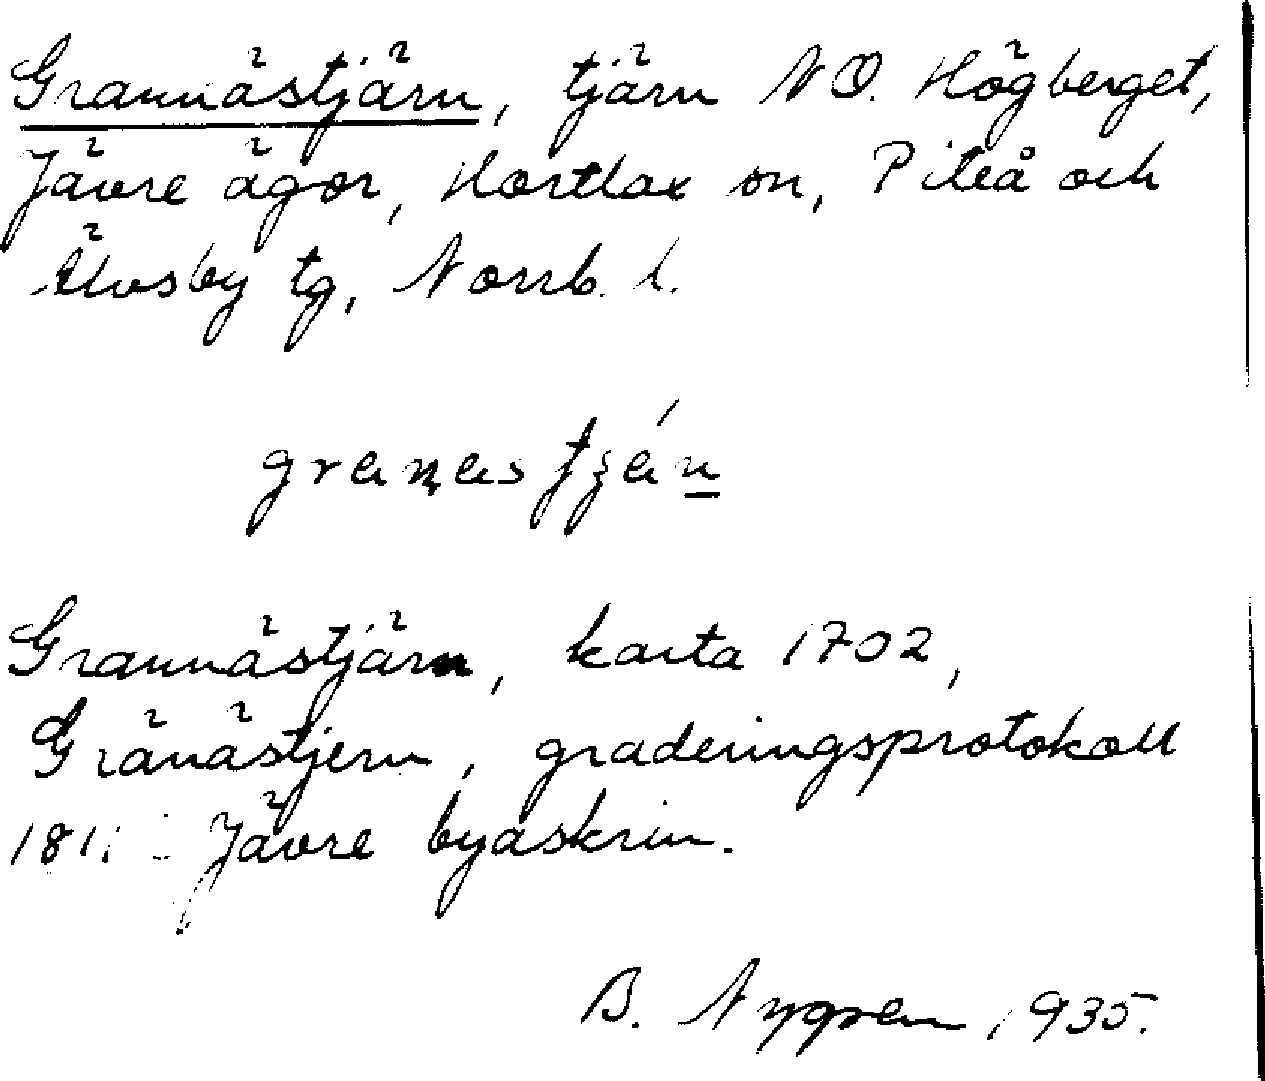 Grannästjärn, tjärn NO. Högberget,
Jävre ägor, Hortlax sn, Piteå och
Älvsby tg, Norrb. l.
Grannästjärn, karta 1702,
Gränästjern, graderingsprotokoll
Jävre byaskrin.
B. Nygren 1935.